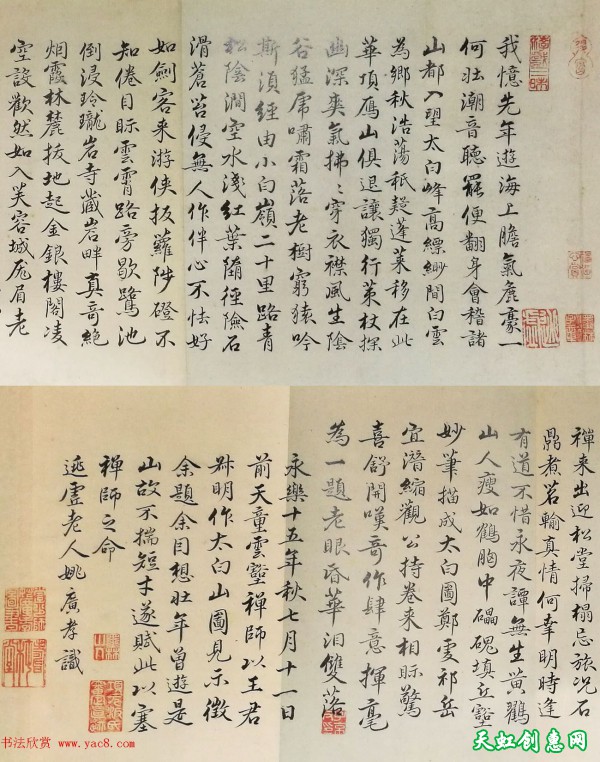 我憶先年遊海上膽氣麁豪一
何壯潮音聽罷便翻身會稽諸
山都入望太白峰高縹緲間白雲
為鄉秋浩蕩秪疑蓬萊移在此
華頂鴈山俱退讓獨行策杖探
幽深爽氣拂〻穿衣襟風生陰
谷猛虎嘯霜落老樹窮猿吟
斯須經由小白嶺二十里路青
松陰澗空水淺紅葉隨徑險石
滑蒼苔侵無人作伴心不怯好
如劍客來游俠拔蘿陟磴不
知倦目眎雲霄路旁歇鷺池
倒浸玲瓏岩寺藏岩畔真奇絕
烟霞林麓拔地起金銀樓閣凌
空設歡然如入芙容城厖眉老
禪來出迎松堂掃榻忘旅況石
鼎煮茗輸真情何幸明時逢
有道不惜永夜譚無生黃鸝
山人瘦如鶴胸中磊磈填丘壑
妙筆描成太白圖鄭虔祁岳
宜潛縮觀公持卷來相眎驚
喜舒開嘆奇作肆意揮毫
為一題老眼昏華泪雙落
永樂十五年秋七月十一日
前天童雲壑禪師以王君
叔明作太白山圖見示徵
余題余目想壯年曾遊是
山故不揣短才遂賦此以塞
禪師之命
逃虛老人姚廣孝識
书法欣赏 www.yac8.com
天虹创惠网